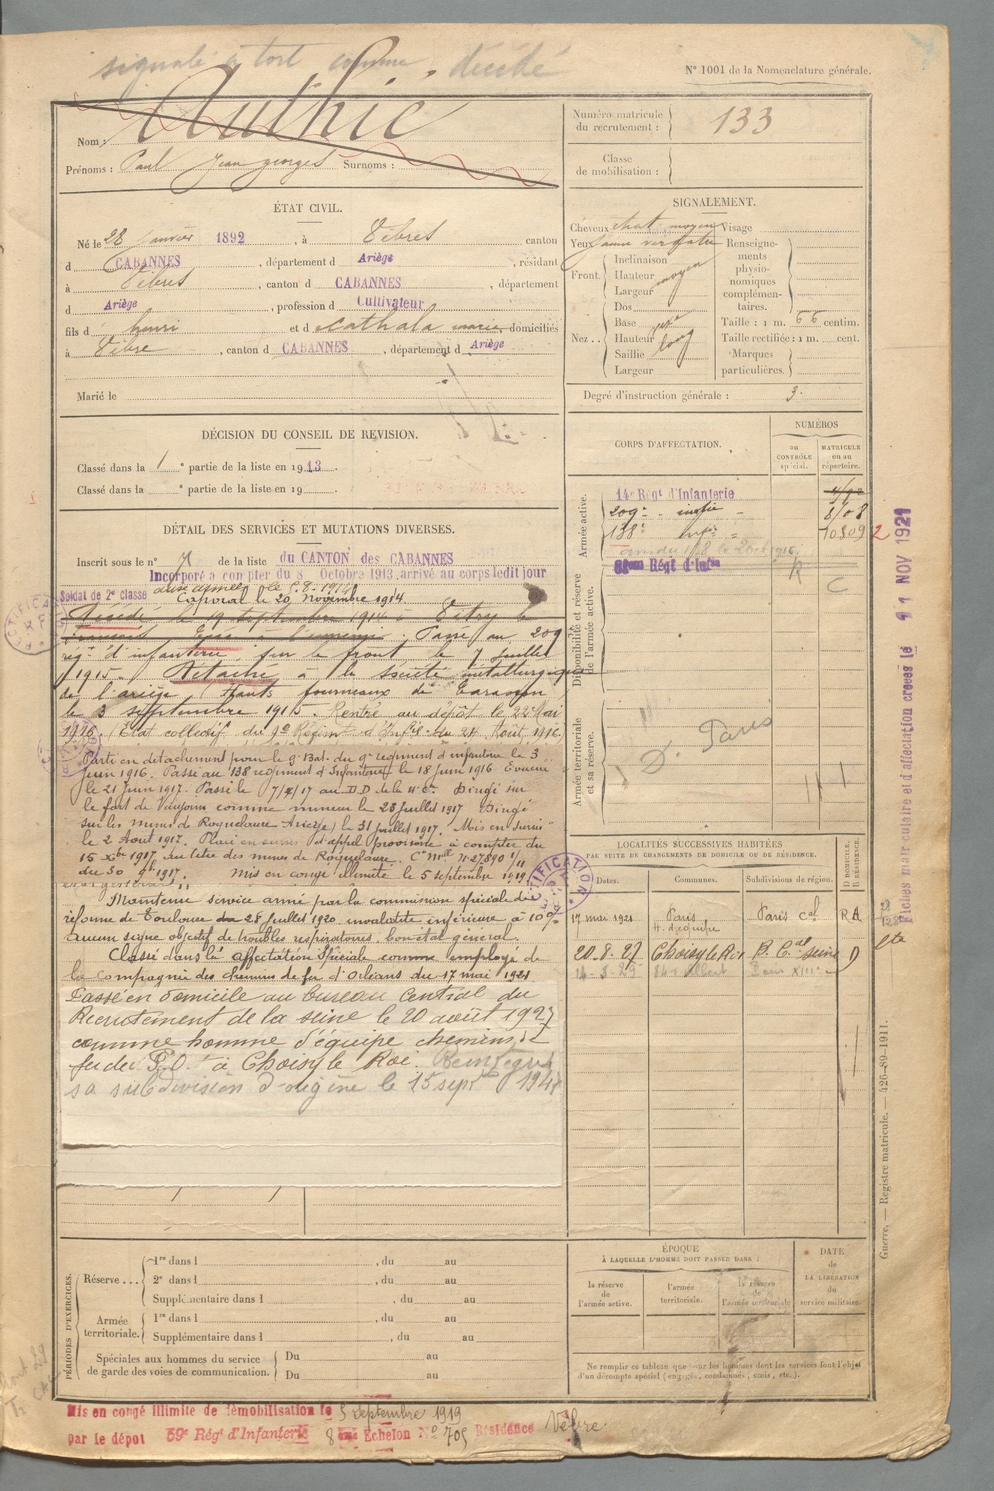 signalé à tort comme décédé
N° 1001 de la Nomenclature générale.
Nom : Authié
Prénoms : Paul Jean georges Surnoms :
Numéro matricule du recrutement : 133
Classe de mobilisation :
ÉTAT CIVIL.
Né le 28 janvier 1892, à Vèbres canton
d CABANNES, département d Ariège, résidant
à Vèbres, canton d CABANNES, département
d Ariège, profession d Cultivateur
fils d henri et d Cathala marie, domiciliés
à Vèbre, canton d CABANNES, département d Ariège
Marié le
SIGNALEMENT.
Cheveux chat. moyen Visage
Yeux jaune verdatre Renseignements physionomiques complémentaires.
Front. Inclinaison
Hauteur moyen
Largeur
Nez.. Dos
Base
Hauteur
Saillie long
Largeur
Taille : 1 m. 66 centim.
Taille rectifiée : 1 m. cent.
Marques particulières.
Degré d'instruction générale : 3.
DÉCISION DU CONSEIL DE RÉVISION.
Classé dans la 1 e partie de la liste en 1913.
Classé dans la e partie de la liste en 19
CORPS D'AFFECTATION.
NUMÉROS
au CONTRÔLE spécial.
MATRICULE ou au répertoire.
Armée active.
14e Régt d'Infanterie
209e infie 8108
138e Infie 10809
Disponibilité et réserve de l'armée active.
Armée territoriale et sa réserve.
D. Paris
DÉTAIL DES SERVICES ET MUTATIONS DIVERSES.
Inscrit sous le n° 7 de la liste du CANTON des CABANNES
Incorporé à compter du 8 Octobre 1913, arrivé au corps ledit jour
Soldat de 2e classe
Caporal le 20 novembre 1914
Décédé le 19 septembre 1914 à Vitry le
français. Passé au 209
régt d'infanterie, sur le front le 7 juillet
1915. Détaché à la société métallurgique
de l'ariège, hauts fourneaux de Tarascon
le 3 septembre 1915. Rentré au dépôt le 22 Mai
1916. (Etat collectif du 9e Région d'Infie du 24 Août 1916.
Parti en détachement pour le 9e Bat. du 9e régiment d'infanterie le 3
juin 1916. Passé au 138 régiment d'Infanterie le 18 juin 1916. Evacué
le 21 juin 1917. Passé le 7/7/17 au D.D. de la 4e Cie. Dirigé sur
le fort de Vaujours comme mineur le 23 juillet 1917. Dirigé
sur les mines de Roquelaure Ariège) le 31 juillet 1917. Mis en sursis
le 2 Aout 1917. d'appel provisoire à compter du
15 Xbre 1917, au titre des mines de Roquelaure. Cie Mlle N° 27890 1/11
du 30 9bre 1917. Mis en congé illimité le 5 septembre 1919
Maintenu service armé par la commission spéciale de
réforme de Toulouse du 28 juillet 1920, invalidité inférieure à 10%
aucun signe objectif de troubles respiratoires, bon état général.
Classé dans la affectation spéciale comme employé de
la Compagnie des chemins de fer d'Orléans du 17 mai 1921
Passé en domicile au bureau central du
Recrutement de la seine le 20 août 1927
comme homme d'équipe chemins de
fer du P.O. à Choisy le Roi. Réintégré
sa subdivision d'origine le 15 sept 1948
LOCALITÉS SUCCESSIVES HABITÉES
PAR SUITE DE CHANGEMENTS DE DOMICILE OU DE RÉSIDENCE.
Dates. Communes. Subdivisions de région. D DOMICILE. R RÉSIDENCE.
17 mai 1921 Paris Paris cal R A
H. d'équipe
20.8.27 Choisy le Roi B. Cal seine D
Paris XIIIe
Fiches matriculaire et d'affectation créées le 11 NOV 1921
Guerre. — Registre matricule. — 426-89-1911.
PÉRIODES D'EXERCICES.
Réserve... 1re dans l , du au
2e dans l , du au
Supplémentaire dans l , du au
Armée territoriale. 1re dans l , du au
Supplémentaire dans l , du au
Spéciales aux hommes du service de garde des voies de communication. Du au
Du au
ÉPOQUE
À LAQUELLE L'HOMME DOIT PASSER DANS :
la réserve de l'armée active.
l'armée territoriale.
la réserve de l'armée territoriale
DATE de LA LIBÉRATION du service militaire.
Ne remplir ce tableau que pour les hommes dont les services font l'objet
d'un décompte spécial (engagés, condamnés, omis, etc.).
Mis en congé illimité de démobilisation le 5 septembre 1919
par le dépôt 59e Régt d'Infanterie 8eme Echelon N° 705 Résidence Vèbre